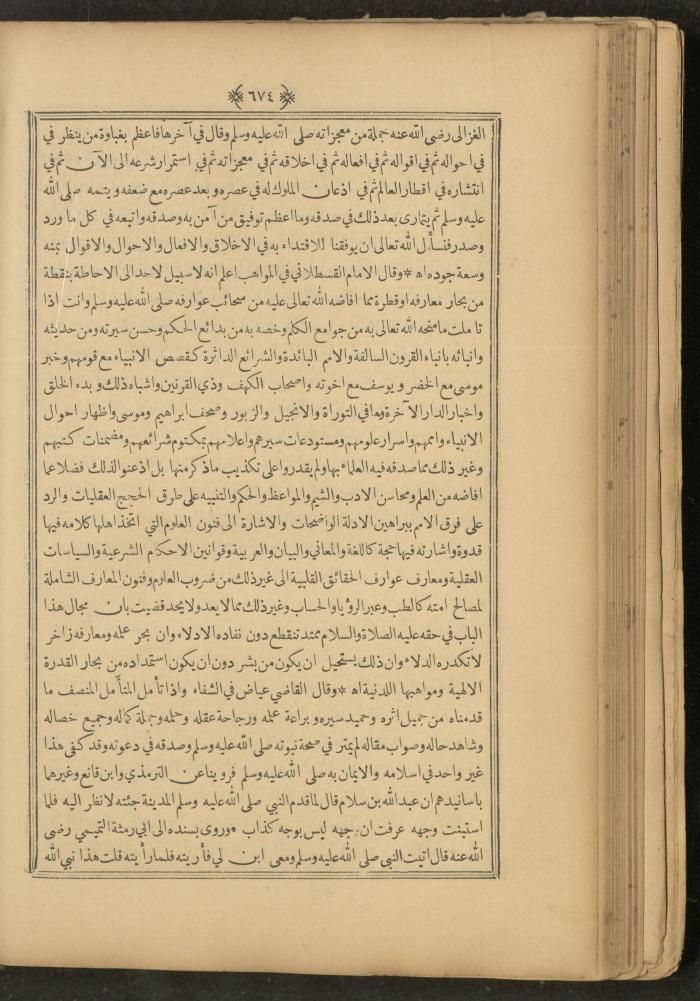 ٦٧٤
الغزالى رضى الله عنه جملة من معجزاته صلى الله عليه وسلم وقال في آخرها فاعظم بغباوة من ينظر في
في احواله ثم في اقواله ثم في افعاله ثم في اخلاقه ثم في معجزاته ثم في استمرار شرعه الى الآن ثم في
انتشاره في اقطار العالم ثم في اذعان الملوك له في عصره وبعد عصره مع ضعفه ويتمه صلى الله
عليه وسلم ثم يتمارى بعد ذلك في صدقه وما اعظم توفيق من آمن به وصدقه واتبعه في كل ما ورد
وصدر فنسأل الله تعالى ان يوفقنا للاقتداء به في الاخلاق والافعال والاحوال والاقوال بمنه
وسعة جوده اه * وقال الامام القسطلاني في المواهب اعلم انه لا سبيل لاحد الى الاحاطة بنقطة
من بحار معارفه او قطرة مما افاضه الله تعالى عليه من سحائب عوارفه صلى الله عليه وسلم وانت اذا
تاملت ما منحه الله تعالى به من جوامع الكلم وخصه به من بدائع الحكم وحسن سيرته ومن حديثه
وانبائه بانباء القرون السالفة والامم البائدة والشرائع الداثرة كقصص الانبياء مع قومهم وخبر
موسى مع الخضر و يوسف مع اخوته واصحاب الكهف وذي القرنين واشباه ذلك و بدء الخلق
واخبار الدار الآخرة وما في التوراة والانجيل والزبور وصحف ابراهيم وموسى واظهار احوال
الانبياء واممهم واسرار علومهم ومستودعات سيرهم واعلامهم بمكتوم شرائعهم ومضمنات كتبهم
وغير ذلك مما صدقه فيه العلماء بها ولم يقدروا على تكذيب ما ذكر منها بل اذعنوا لذلك فضلا عما
افاضه من العلم ومحاسن الادب والشيم والمواعظ والحكم والتنبيه على طرق الحجج العقليات والرد
على فرق الامم ببراهين الادلة الواضحات والاشارة الى فنون العلوم التي اتخذ اهلها كلامه فيها
قدوة واشارته فيها حجة كاللغة والمعاني والبيان والعربية وقوانين الاحكام الشرعية والسياسات
العقلية ومعارف عوارف الحقائق القلبية الى غير ذلك من ضروب العلوم وفنون المعارف الشاملة
لمصالح امته كالطب وعبر الرؤيا والحساب وغير ذلك مما لا يعد ولا يحد قضيت بان مجال هذا
الباب في حقه عليه الصلاة والسلام ممتد تنقطع دون نفاده الادلاء وان بحر علمه ومعارفه زاخر
لا تكدره الدلاء وان ذلك يستحيل ان يكون من بشر دون ان يكون استمداده من بحار القدرة
الالهية ومواهبها اللدنية اه * وقال القاضي عياض في الشفاء واذا تأمل المتأمل المنصف ما
قدمناه من جميل اثره وحميد سيره وبراعة علمه ورجاحة عقله وحلمه وجملة كماله وجميع خصاله
وشاهد حاله وصواب مقاله لم يمتر في صحة نبوته صلى الله عليه وسلم وصدقه في دعوته وقد كفى هذا
غير واحد في اسلامه والايمان به صلى الله عليه وسلم فروينا عن الترمذي وابن قانع وغيرهما
باسانيدهم ان عبد الله بن سلام قال لما قدم النبي صلى الله عليه وسلم المدينة جئته لانظر اليه فلما
استبنت وجهه عرفت ان وجهه ليس بوجه كذاب * وروى بسنده الى ابي رمثة التميمي رضى
الله عنه قال اتيت النبي صلى الله عليه وسلم ومعى ابن لي فأريته فلما رأيته قلت هذا نبي الله